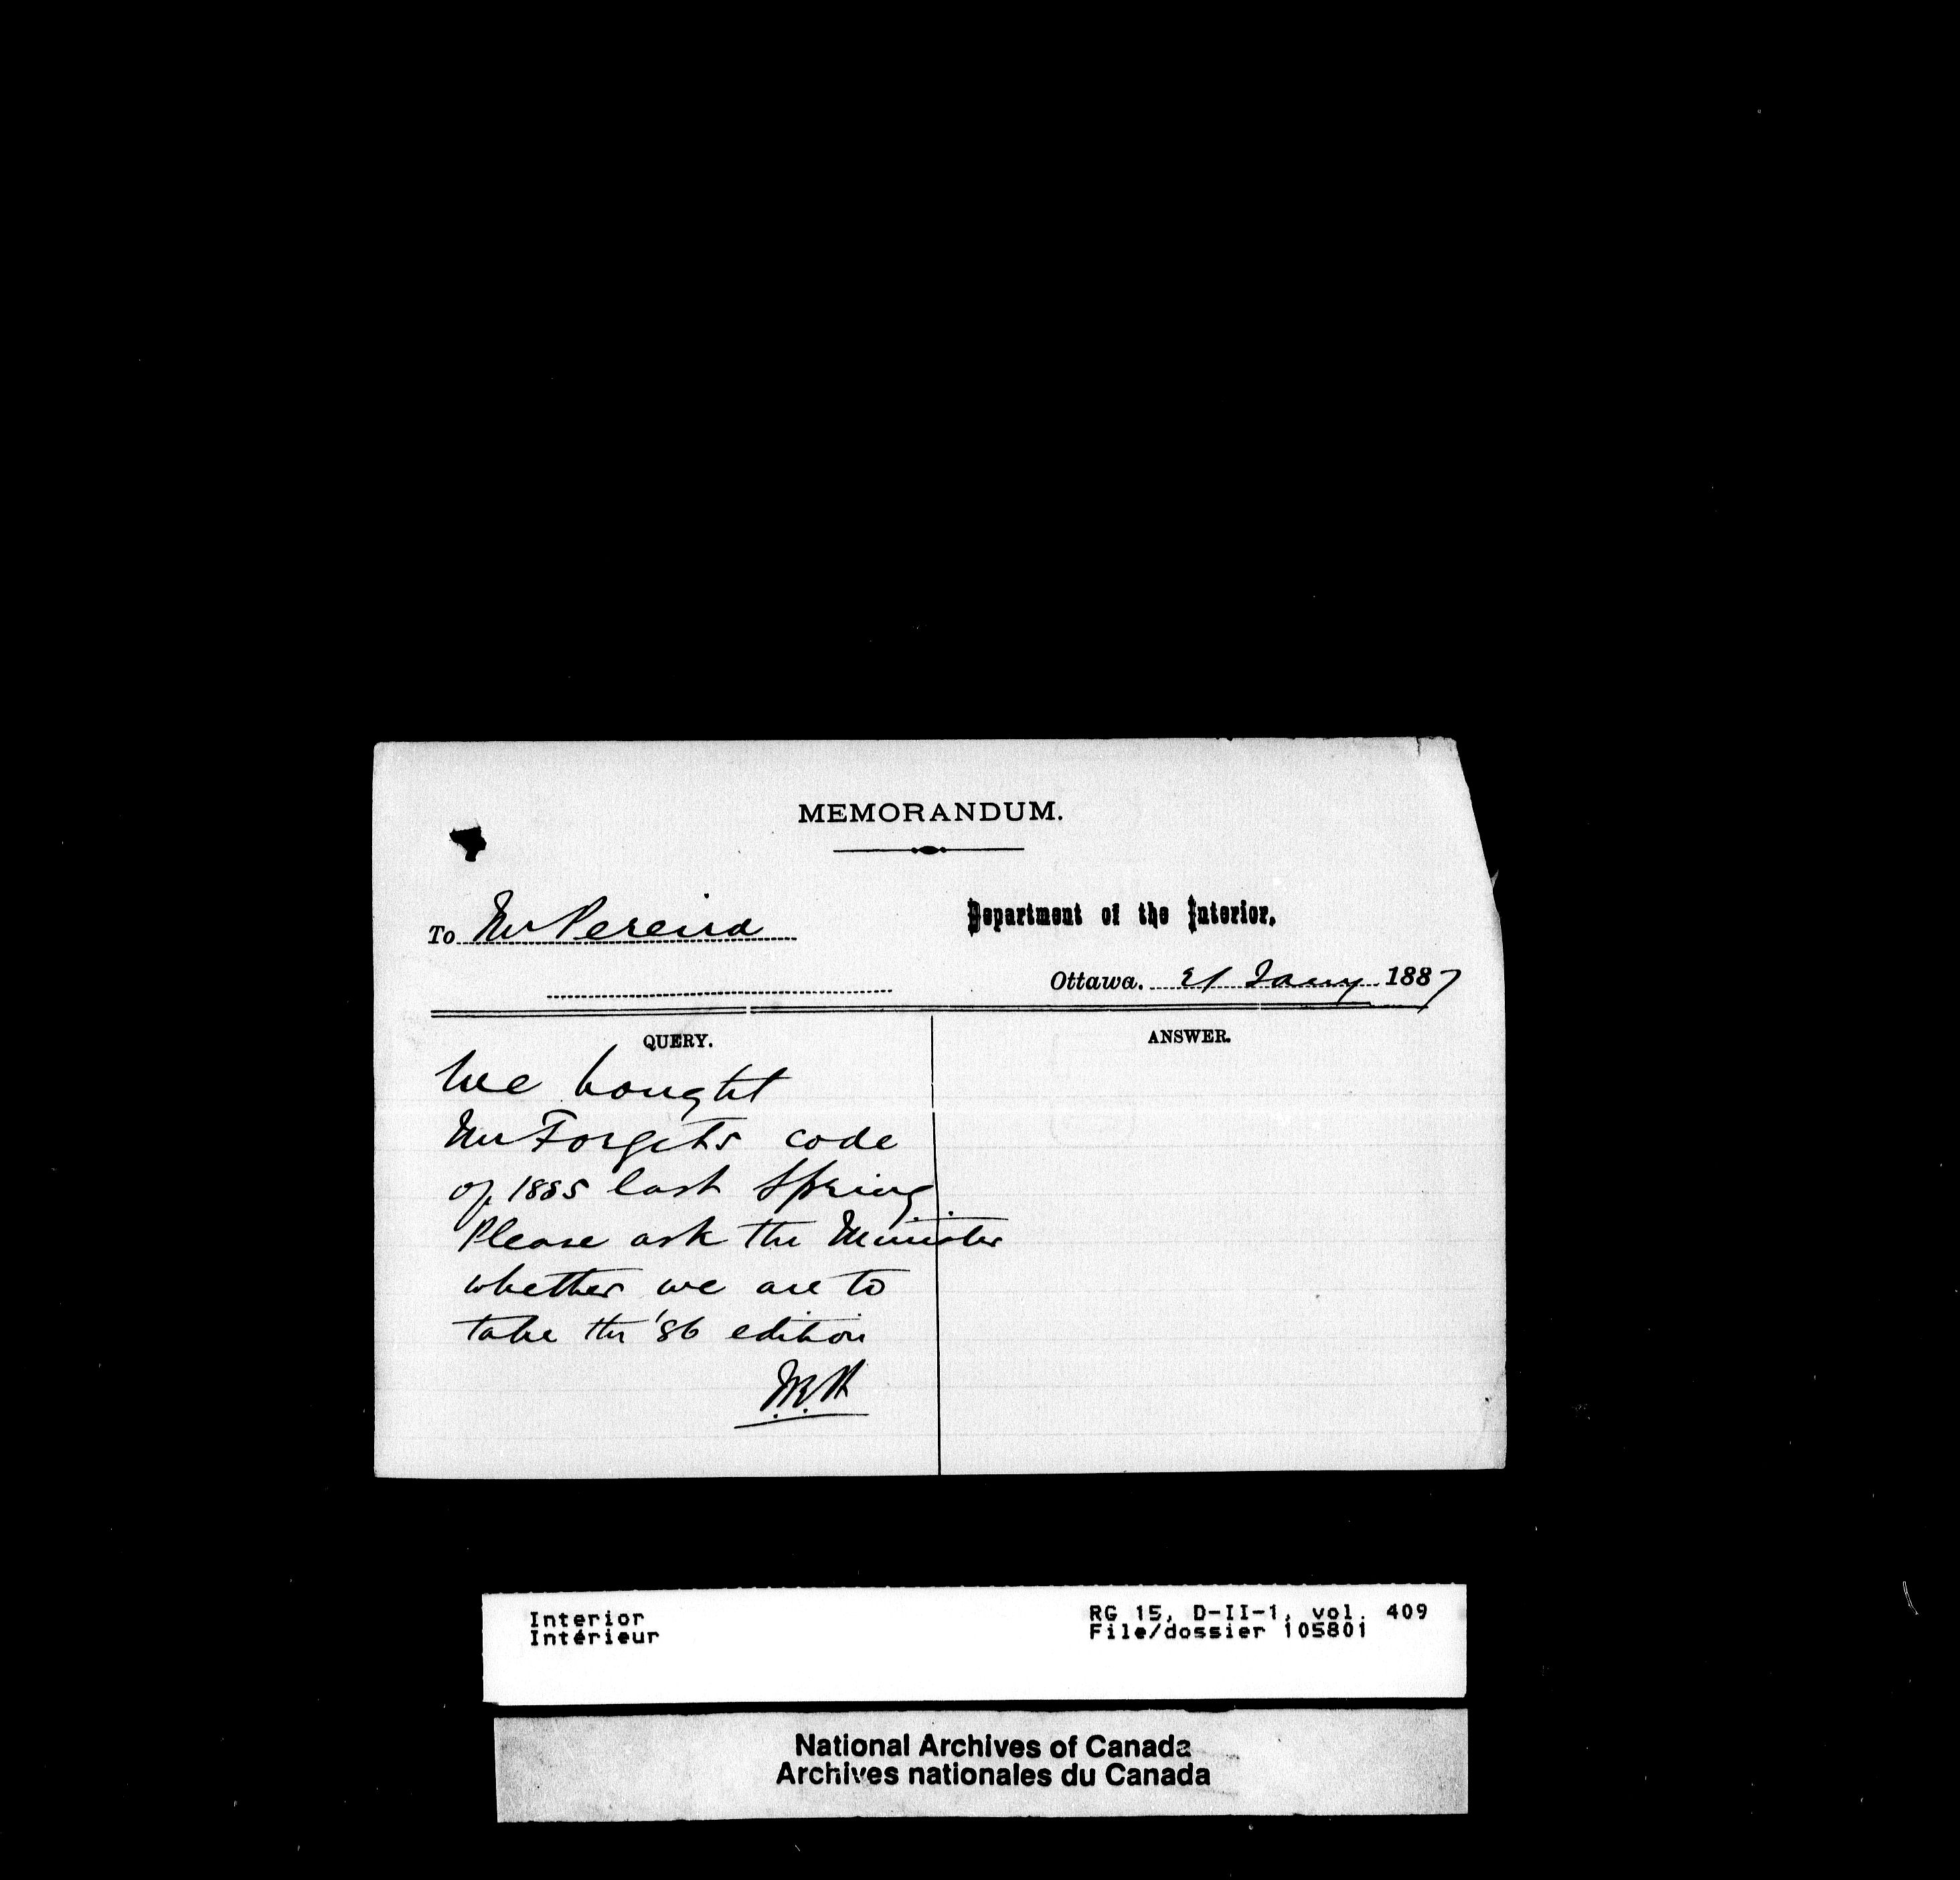 MEMORANDUM.
To Mr Pereira
Department of the Interior,
Ottawa. 21 Jany 1887
QUERY.
ANSWER.
We bought
Mr Forget's code
of 1885 last Spring.
Please ask the Minister
whether we are to
take the '86 edition
Interior
Intérieur
RG 15, D-II-1, vol. 409
File/dossier 105801
National Archives of Canada
Archives nationales du Canada